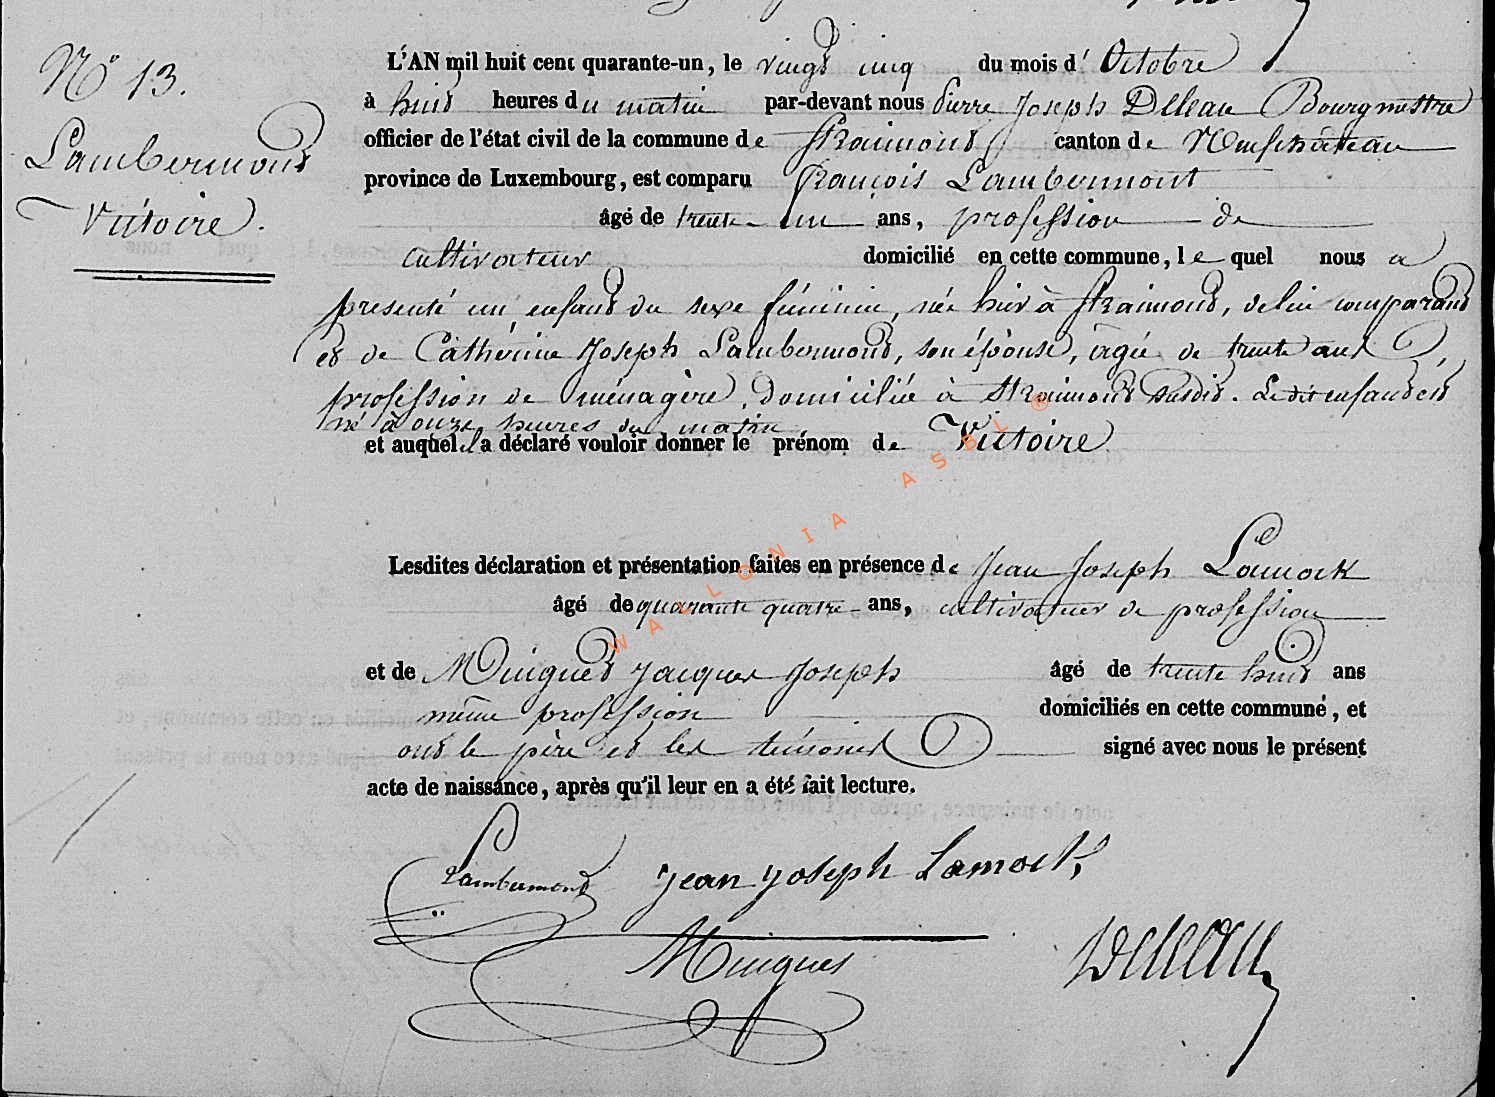 N° 13.
Lambermont
Victoire.
L'AN mil huit cent quarante-un, le vingt cinq du mois d'Octobre
à huit heures du matin par-devant nous Pierre Joseph Deleau Bourgmestre
officier de l'état civil de la commune de Straimont canton de Neufchâteau
province de Luxembourg, est comparu François Lambermont
âgé de trente un ans, profession de
cultivateur domicilié en cette commune, lequel nous a
presenté un enfant du sexe féminin, née hier à Straimont, de lui comparant
et de Cathérine Joseph Lambermont, son épouse, âgée de trente ans,
profession de ménagère, domiciliée à Straimont susdit. Le dit enfant est
né à onze heures du matin
et auquel il a déclaré vouloir donner le prénom de Victoire.
Lesdites déclaration et présentation faites en présence de Jean Joseph Lamock
âgé de quarante quatre ans, cultivateur de profession
et de Minguet Jacques Joseph âgé de trente huit ans
même profession domiciliés en cette commune, et
ont le père et les témoins signé avec nous le présent
acte de naissance, après qu'il leur en a été fait lecture.
Lambermont Jean Joseph Lamock
Minguet Deleau
WALLONIA ASBL ®